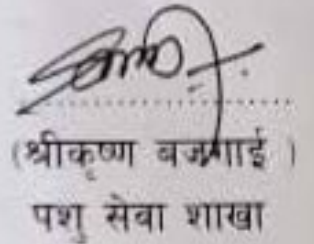 (श्रीकृष्ण बजगाई )
पशु सेवा शाखा